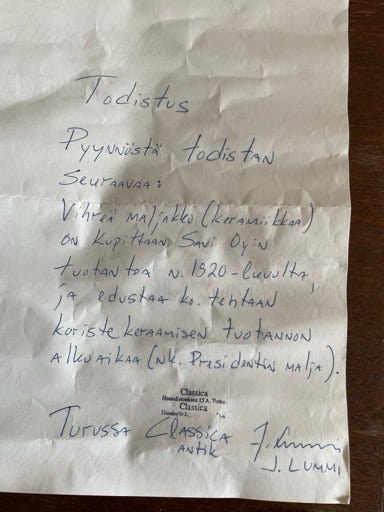 Todistus
Pyynnöstä todistan
seuraavaa:
Vihreä maljakko (keramiikkaa)
on Kupittaan Savi Oy:n
tuotantoa n. 1920-luvulta,
ja edustaa ko. tehtaan
koristekeraamisen tuotannon
alkuaikaa (nk. Presidentin malja).
Classica
Humalistonkatu 15 A, Turku
Classica
Turussa Classica
antik
J. LUMMI